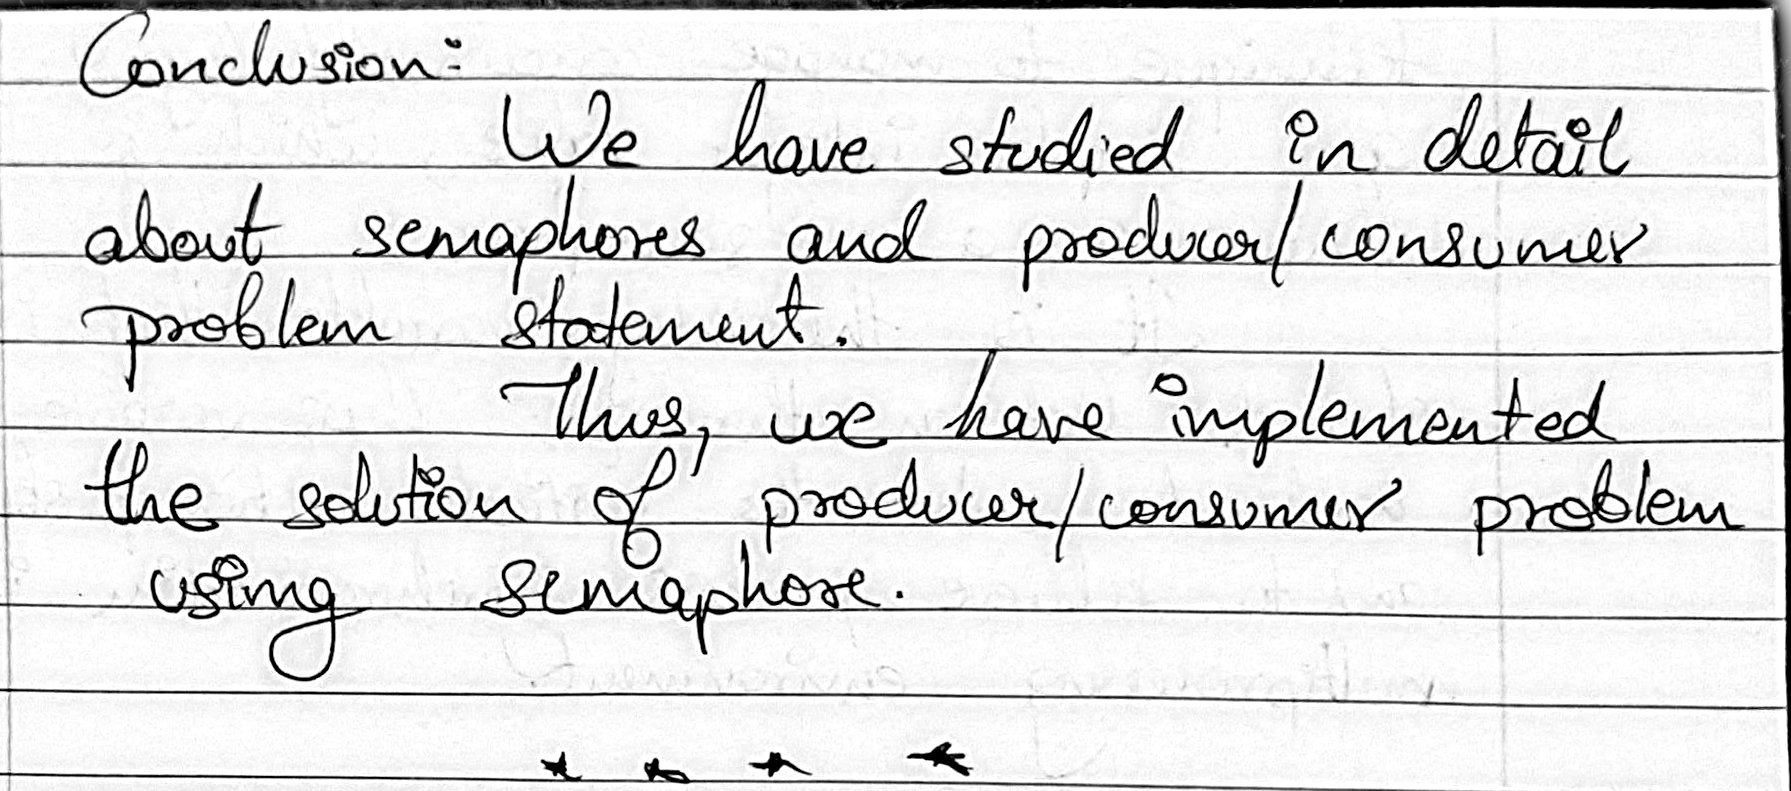 Conclusion:
We have studied in detail
about semaphores and producer/consumer
problem statement.
Thus, we have implemented
the solution of producer/consumer problem
using semaphore.